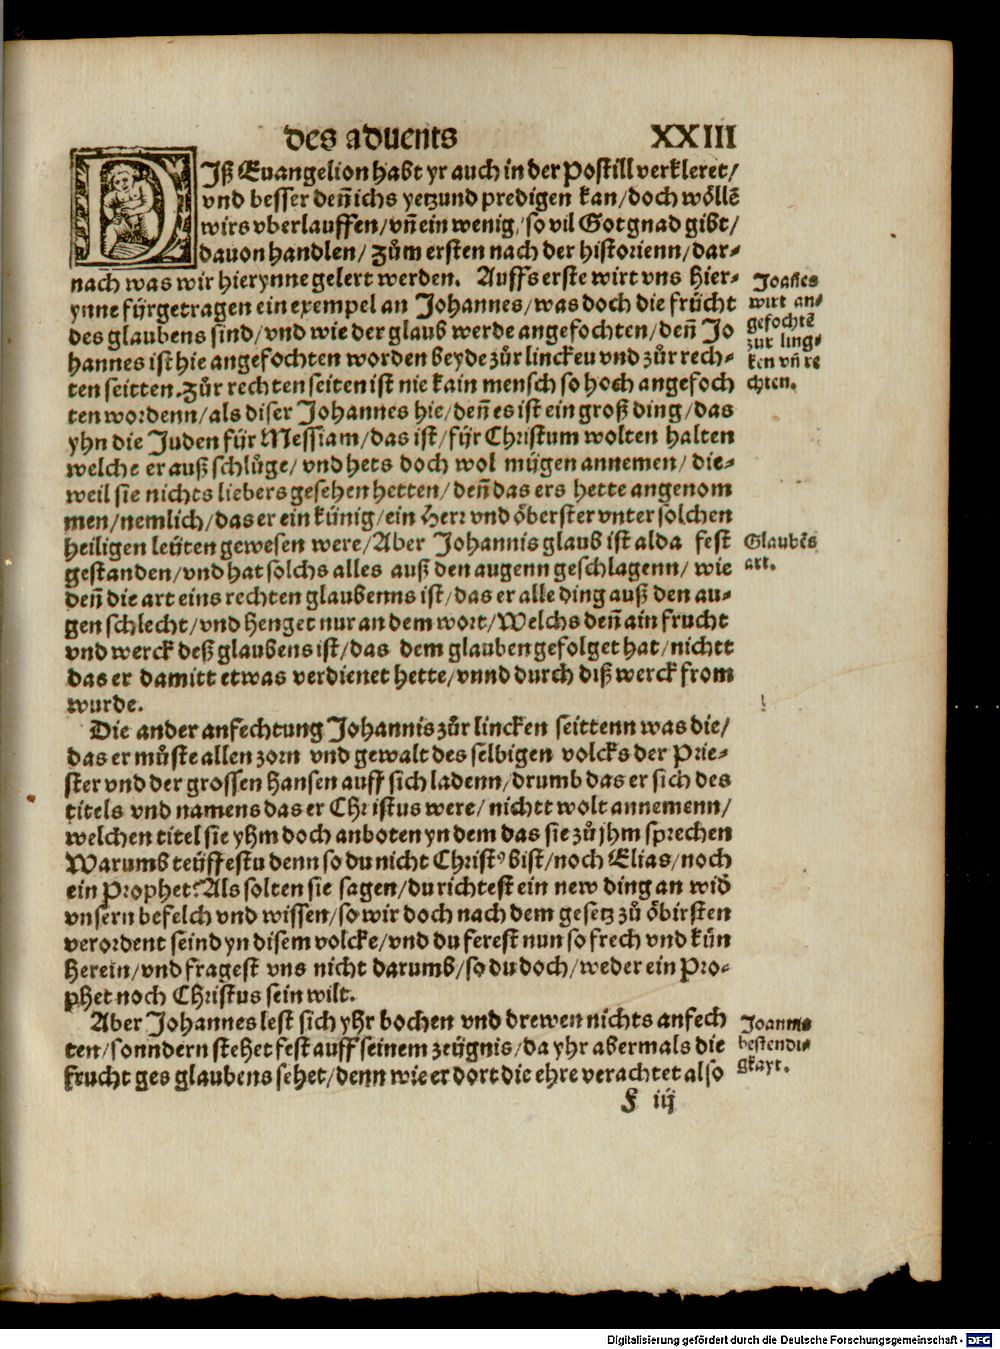 des advents XXIII
DIß Euangelion habt yr auch in der Postill verkleret/
vnd besser deñ ichs yetzund predigen kan/doch wöllē
wirs vberlauffen/vñ ein wenig/so vil Got gnad gibt/
dauon handlen/ zům ersten nach der historienn/dar⸗
nach was wir hierynne gelert werden. Auffs erste wirt vns hier⸗
ynne fürgetragen ein exempel an Johannes/was doch die frücht
des glaubens sind/vnd wie der glaub werde angefochten/deñ Jo
hannes ist hie angefochten worden beyde zůr linckeu vnd zůr rech⸗
ten seitten.Zůr rechten seiten ist nie kain mensch so hoch angefoch
ten wordenn/als diser Johannes hie/deñ es ist ein groß ding/das
yhn die Juden für Messiam/das ist/für Christum wolten halten
welche er auß schlůge/vnd hets doch wol mügen annemen/ die⸗
weil sie nichts liebers gesehen hetten/deñ das ers hette angenom
men/nemlich/das er ein künig/ein Herr vnd öberster vnter solchen
heiligen leüten gewesen were/Aber Johannis glaub ist alda fest
gestanden/vnd hat solchs alles auß den augenn geschlagenn/ wie
deñ die art eins rechten glaubenns ist/das er alle ding auß den au⸗
gen schlecht/vnd henget nur an dem wort/Welchs deñ ain frucht
vnd werck deß glaubens ist/das dem glauben gefolget hat/nichtt
das er damitt etwas verdienet hette/vnnd durch diß werck from
wurde.
Joañes
wirt an⸗
gefochtē
zur ling⸗
ken vñ re
chten.
Glaubēs
art.
Die ander anfechtung Johannis zůr lincken seittenn was die/
das er můste allen zorn vnd gewalt des selbigen volcks der Prie⸗
ster vnd der grossen Hansen auff sich ladenn/drumb das er sich des
titels vnd namens das er Christus were/nichtt wolt annemenn/
welchen titel sie yhm doch anboten yn dem das sie zů jhm sprechen
Warumb teüffestu denn so du nicht Christꝰ bist/noch Elias/noch
ein Prophet? Als solten sie sagen/du richtest ein new ding an wid̕
vnsern befelch vnd wissen/so wir doch nach dem gesetz zů öbirsten
verordent seind yn disem volcke/vnd du ferest nun so frech vnd kün
herein/vnd fragest vns nicht darumb/so du doch/weder ein Pro⸗
phet noch Christus sein wilt.
Aber Johannes lest sich yhr bochen vnd drewen nichts anfech
ten/sonndern stehet fest auff seinem zeügnis/da yhr abermals die
frucht ges glaubens sehet/denn wie er dort die ehre verachtet also
Joannis
bestendi⸗
gkayt.
F iij
Digitalisierung gefördert durch die Deutsche Forschungsgemeinschaft - DFG